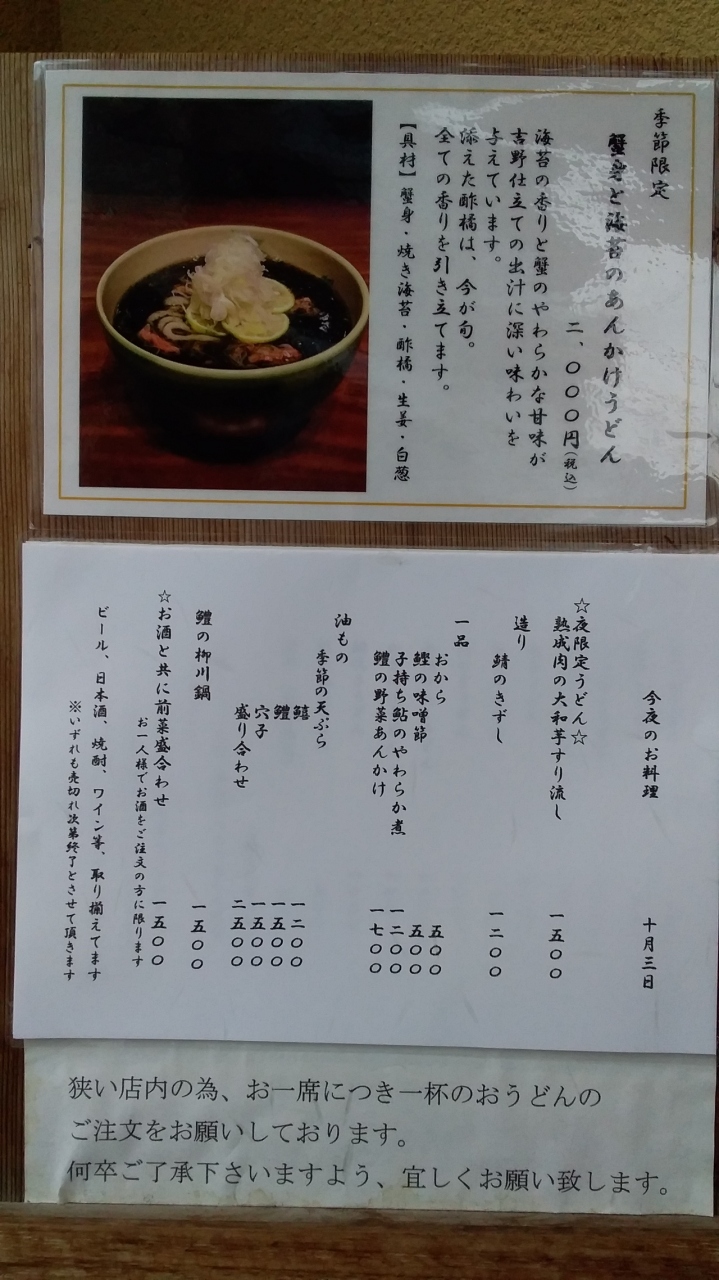 季節限定
蟹身と海苔のあんかけうどん
二、〇〇〇円(税込)
海苔の香りと蟹のやわらかな甘味が
吉野仕立ての出汁に深い味わいを
与えています。
添えた酢橘は、今が旬。
全ての香りを引き立てます。
【具材】蟹身・焼き海苔・酢橘・生姜・白葱
今夜のお料理 十月三日
☆夜限定うどん☆
熟成肉の大和芋すり流し 一五〇〇
造り
鯖のきずし 一二〇〇
一品
おから 五〇〇
鰹の味噌節 五〇〇
子持ち鮎のやわらか煮 一二〇〇
鱧の野菜あんかけ 一七〇〇
油もの
季節の天ぷら
鱚 一二〇〇
鱧 一五〇〇
穴子 一五〇〇
盛り合わせ 二五〇〇
鱧の柳川鍋 一五〇〇
☆お酒と共に前菜盛合わせ 一五〇〇
お一人様でお酒をご注文の方に限ります
ビール、日本酒、焼酎、ワイン等、取り揃えてます
※いずれも売切れ次第終了とさせて頂きます
狭い店内の為、お一席につき一杯のおうどんの
ご注文をお願いしております。
何卒ご了承下さいますよう、宜しくお願い致します。